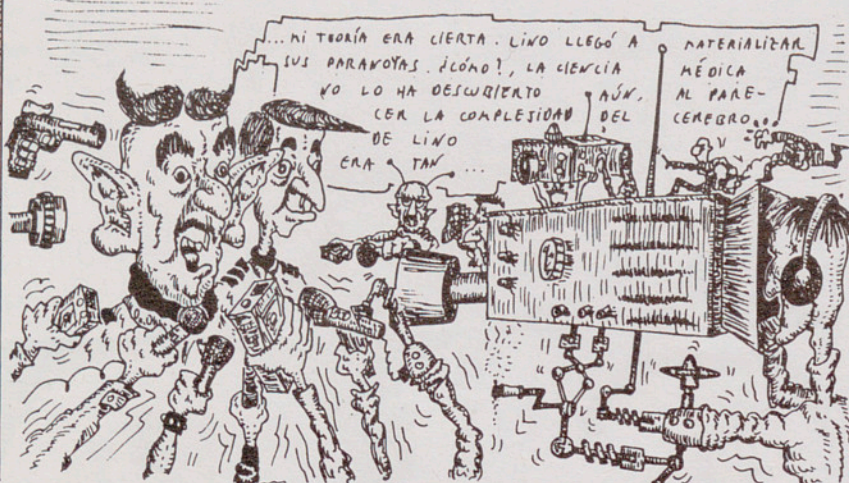 ...MI TEORÍA ERA CIERTA. LINO LLEGÓ A MATERIALIZAR
SUS PARANOYAS. ¿CÓMO?, LA CIENCIA MÉDICA
NO LO HA DESCUBIERTO AÚN, AL PARE-
CER LA COMPLEJIDAD DEL CEREBRO...
DE LINO
ERA TAN ...